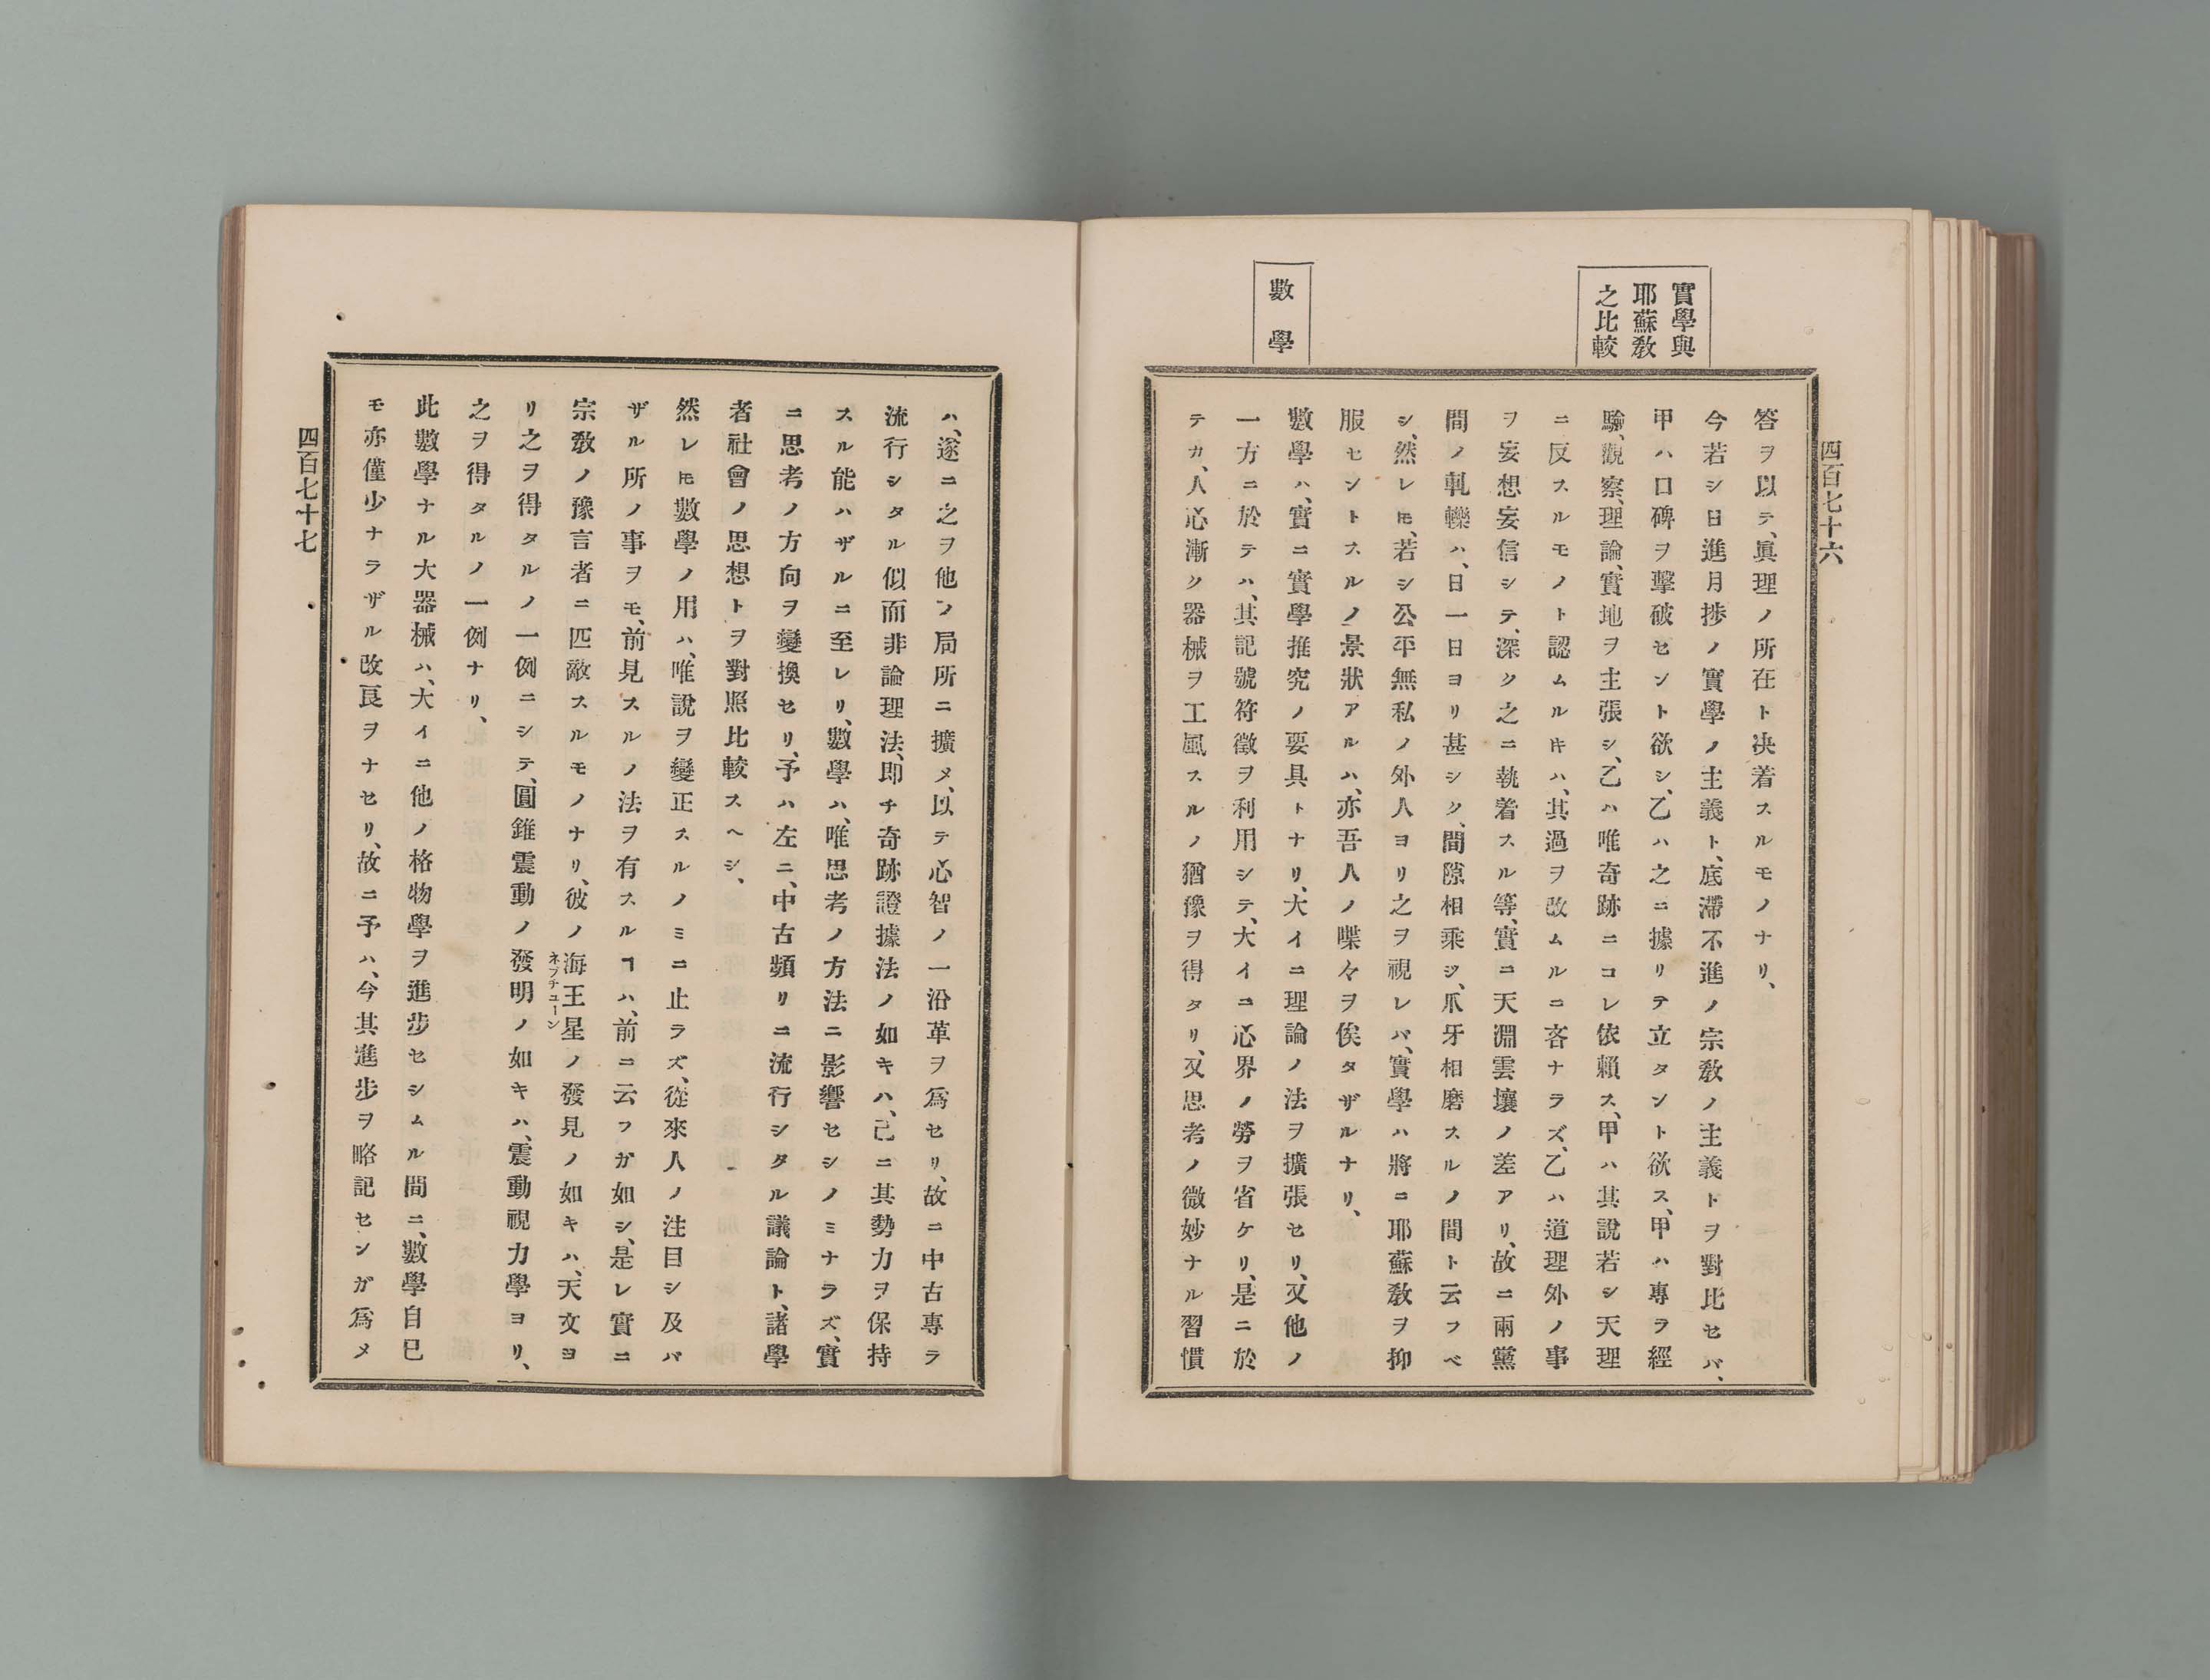 四百七十六
實學與
耶蘇敎
之比較
數學
答ヲ以テ、眞理ノ所在ト决着スルモノナリ、
今若シ日進月捗ノ實學ノ主義ト、底滯不進ノ宗敎ノ主義トヲ對比セバ、
甲ハ口碑ヲ擊破セント欲シ、乙ハ之ニ據リテ立タント欲ス、甲ハ專ラ經
驗、觀察、理論、實地ヲ主張シ、乙ハ唯奇跡ニコレ依賴ス、甲ハ其說若シ天理
ニ反スルモノト認ムルキハ、其過ヲ改ムルニ吝ナラズ、乙ハ道理外ノ事
ヲ妄想妄信シテ、深ク之ニ執着スル等、實ニ天淵雲壤ノ差アリ、故ニ兩黨
間ノ軋轢ハ、日一日ヨリ甚シク、間隙相乘シ、爪牙相磨スルノ間ト云フベ
シ、然レ𪜈、若シ公平無私ノ外人ヨリ之ヲ視レバ、實學ハ將ニ耶蘇敎ヲ抑
服セントスルノ景狀アルハ、亦吾人ノ喋々ヲ俟タザルナリ、
數學ハ、實ニ實學推究ノ要具トナリ、大イニ理論ノ法ヲ擴張セリ、又他ノ
一方ニ於テハ、其記號符徵ヲ利用シテ、大イニ心界ノ勞ヲ省ケリ、是ニ於
テカ、人心漸ク器械ヲ工風スルノ猶豫ヲ得タリ、又思考ノ微妙ナル習慣
ハ、遂ニ之ヲ他ノ局所ニ擴メ、以テ心智ノ一沿革ヲ爲セリ、故ニ中古專ラ
流行シタル似而非論理法、即チ奇跡證據法ノ如キハ、己ニ其勢力ヲ保持
スル能ハザルニ至レリ、數學ハ、唯思考ノ方法ニ影響セシノミナラズ、實
ニ思考ノ方向ヲ變換セリ、予ハ左ニ、中古頻リニ流行シタル議論ト、諸學
者社會ノ思想トヲ對照比較スヘシ、
然レ𪜈數學ノ用ハ、唯說ヲ變正スルノミニ止ラズ、從來人ノ注目シ及バ
ザル所ノ事ヲモ、前見スルノ法ヲ有スルヿハ、前ニ云フガ如シ、是レ實ニ
宗敎ノ豫言者ニ匹敵スルモノナリ、彼ノ海王星ノ發見ノ如キハ、天文ヨ
ネプチユーン
リ之ヲ得タルノ一例ニシテ、圓錐震動ノ發明ノ如キハ、震動視力學ヨリ、
之ヲ得タルノ一例ナリ、
此數學ナル大器械ハ、大イニ他ノ格物學ヲ進步セシムル間ニ、數學自巳
モ亦僅少ナラザル改良ヲナセリ、故ニ予ハ、今其進步ヲ略記センガ爲メ
四百七十七